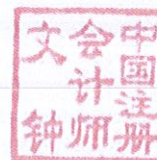 中国注册
会计师
文钟